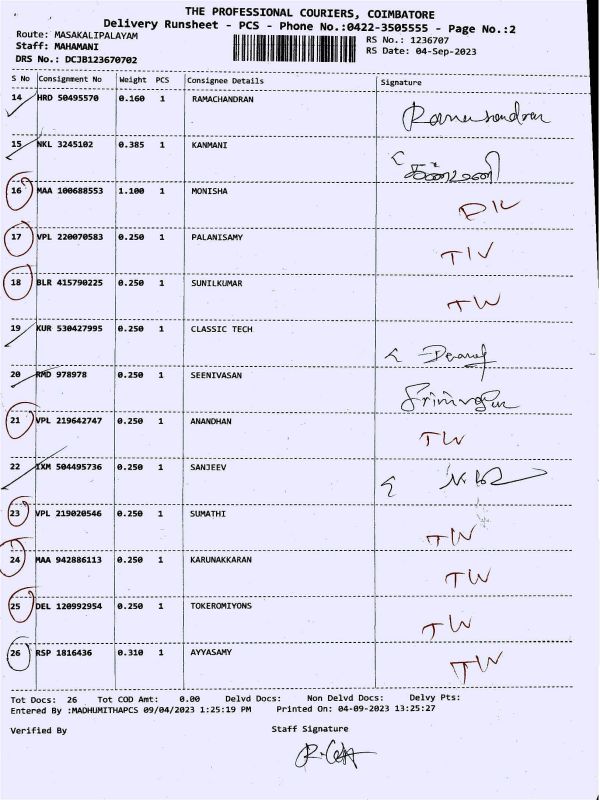 THE PROFESSIONAL COURIERS, COIMBATORE
Delivery Runsheet - PCS - Phone No.:0422-3505555 - Page No.:2
Route: MASAKALIPALAYAM
Staff: MAHAMANI
DRS No.: DCJB123670702
RS No.: 1236707
RS Date: 04-Sep-2023
S No Consignment No Weight PCS Consignee Details Signature
14 HRD 50495570 0.160 1 RAMACHANDRAN Ramachandran
15 NKL 3245102 0.385 1 KANMANI
16 MAA 100688553 1.100 1 MONISHA D/L
17 VPL 220070583 0.250 1 PALANISAMY TIV
18 BLR 415790225 0.250 1 SUNILKUMAR TW
19 KUR 530427995 0.250 1 CLASSIC TECH
20 RMD 978978 0.250 1 SEENIVASAN
21 VPL 219642747 0.250 1 ANANDHAN TW
22 IXM 504495736 0.250 1 SANJEEV
23 VPL 219020546 0.250 1 SUMATHI TW
24 MAA 942886113 0.250 1 KARUNAKKARAN TW
25 DEL 120992954 0.250 1 TOKEROMIYONS TW
26 RSP 1816436 0.310 1 AYYASAMY TW
Tot Docs: 26 Tot COD Amt: 0.00 Delvd Docs: Non Delvd Docs: Delvy Pts:
Entered By :MADHUMITHAPCS 09/04/2023 1:25:19 PM Printed On: 04-09-2023 13:25:27
Verified By Staff Signature